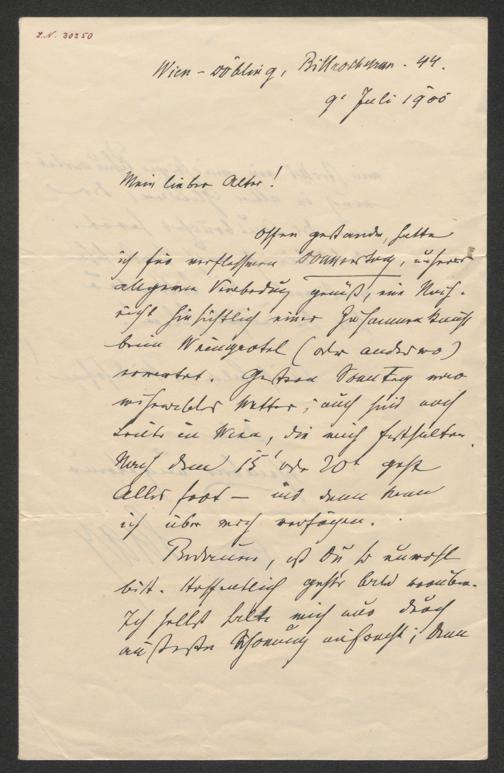 I.N. 30250
Wien-Döbling, Billrothstrasse 44.
9t Juli 1900
Mein lieber Alter!
Offen gestanden, hatte
ich für verflossenen Donnerstag, unserer
Verabredung gemäß, eine Nach-
richt hinsichtlich einer Zusammenkunft
beim Weingartel (oder anderswo)
erwartet. Gestern Sonntag war
miserables Wetter; auch sind noch
Leute in Wien, die mich festhalten.
Nach dem 15t oder 20t geht
Alles fort – und dann kann
ich über mich verfügen.
Bedauere, daß Du so unwohl
bist. Hoffentlich geht's bald vorüber.
Ich selbst halte mich nur durch
äußerste Schonung aufrecht; denn